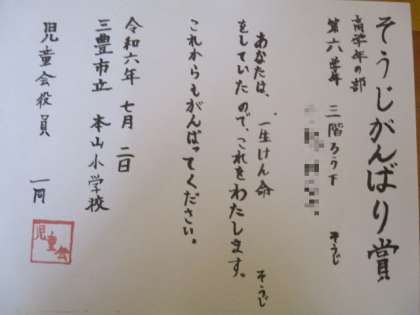 そうじがんばり賞
高学年の部
第六学年 三階ろう下 そうじ
あなたは、一生けん命 そうじ
をしていたので、これをわたします。
これからもがんばってください。
令和六年 七月 二日
三豊市立 本山小学校
児童会役員 一同
児童会